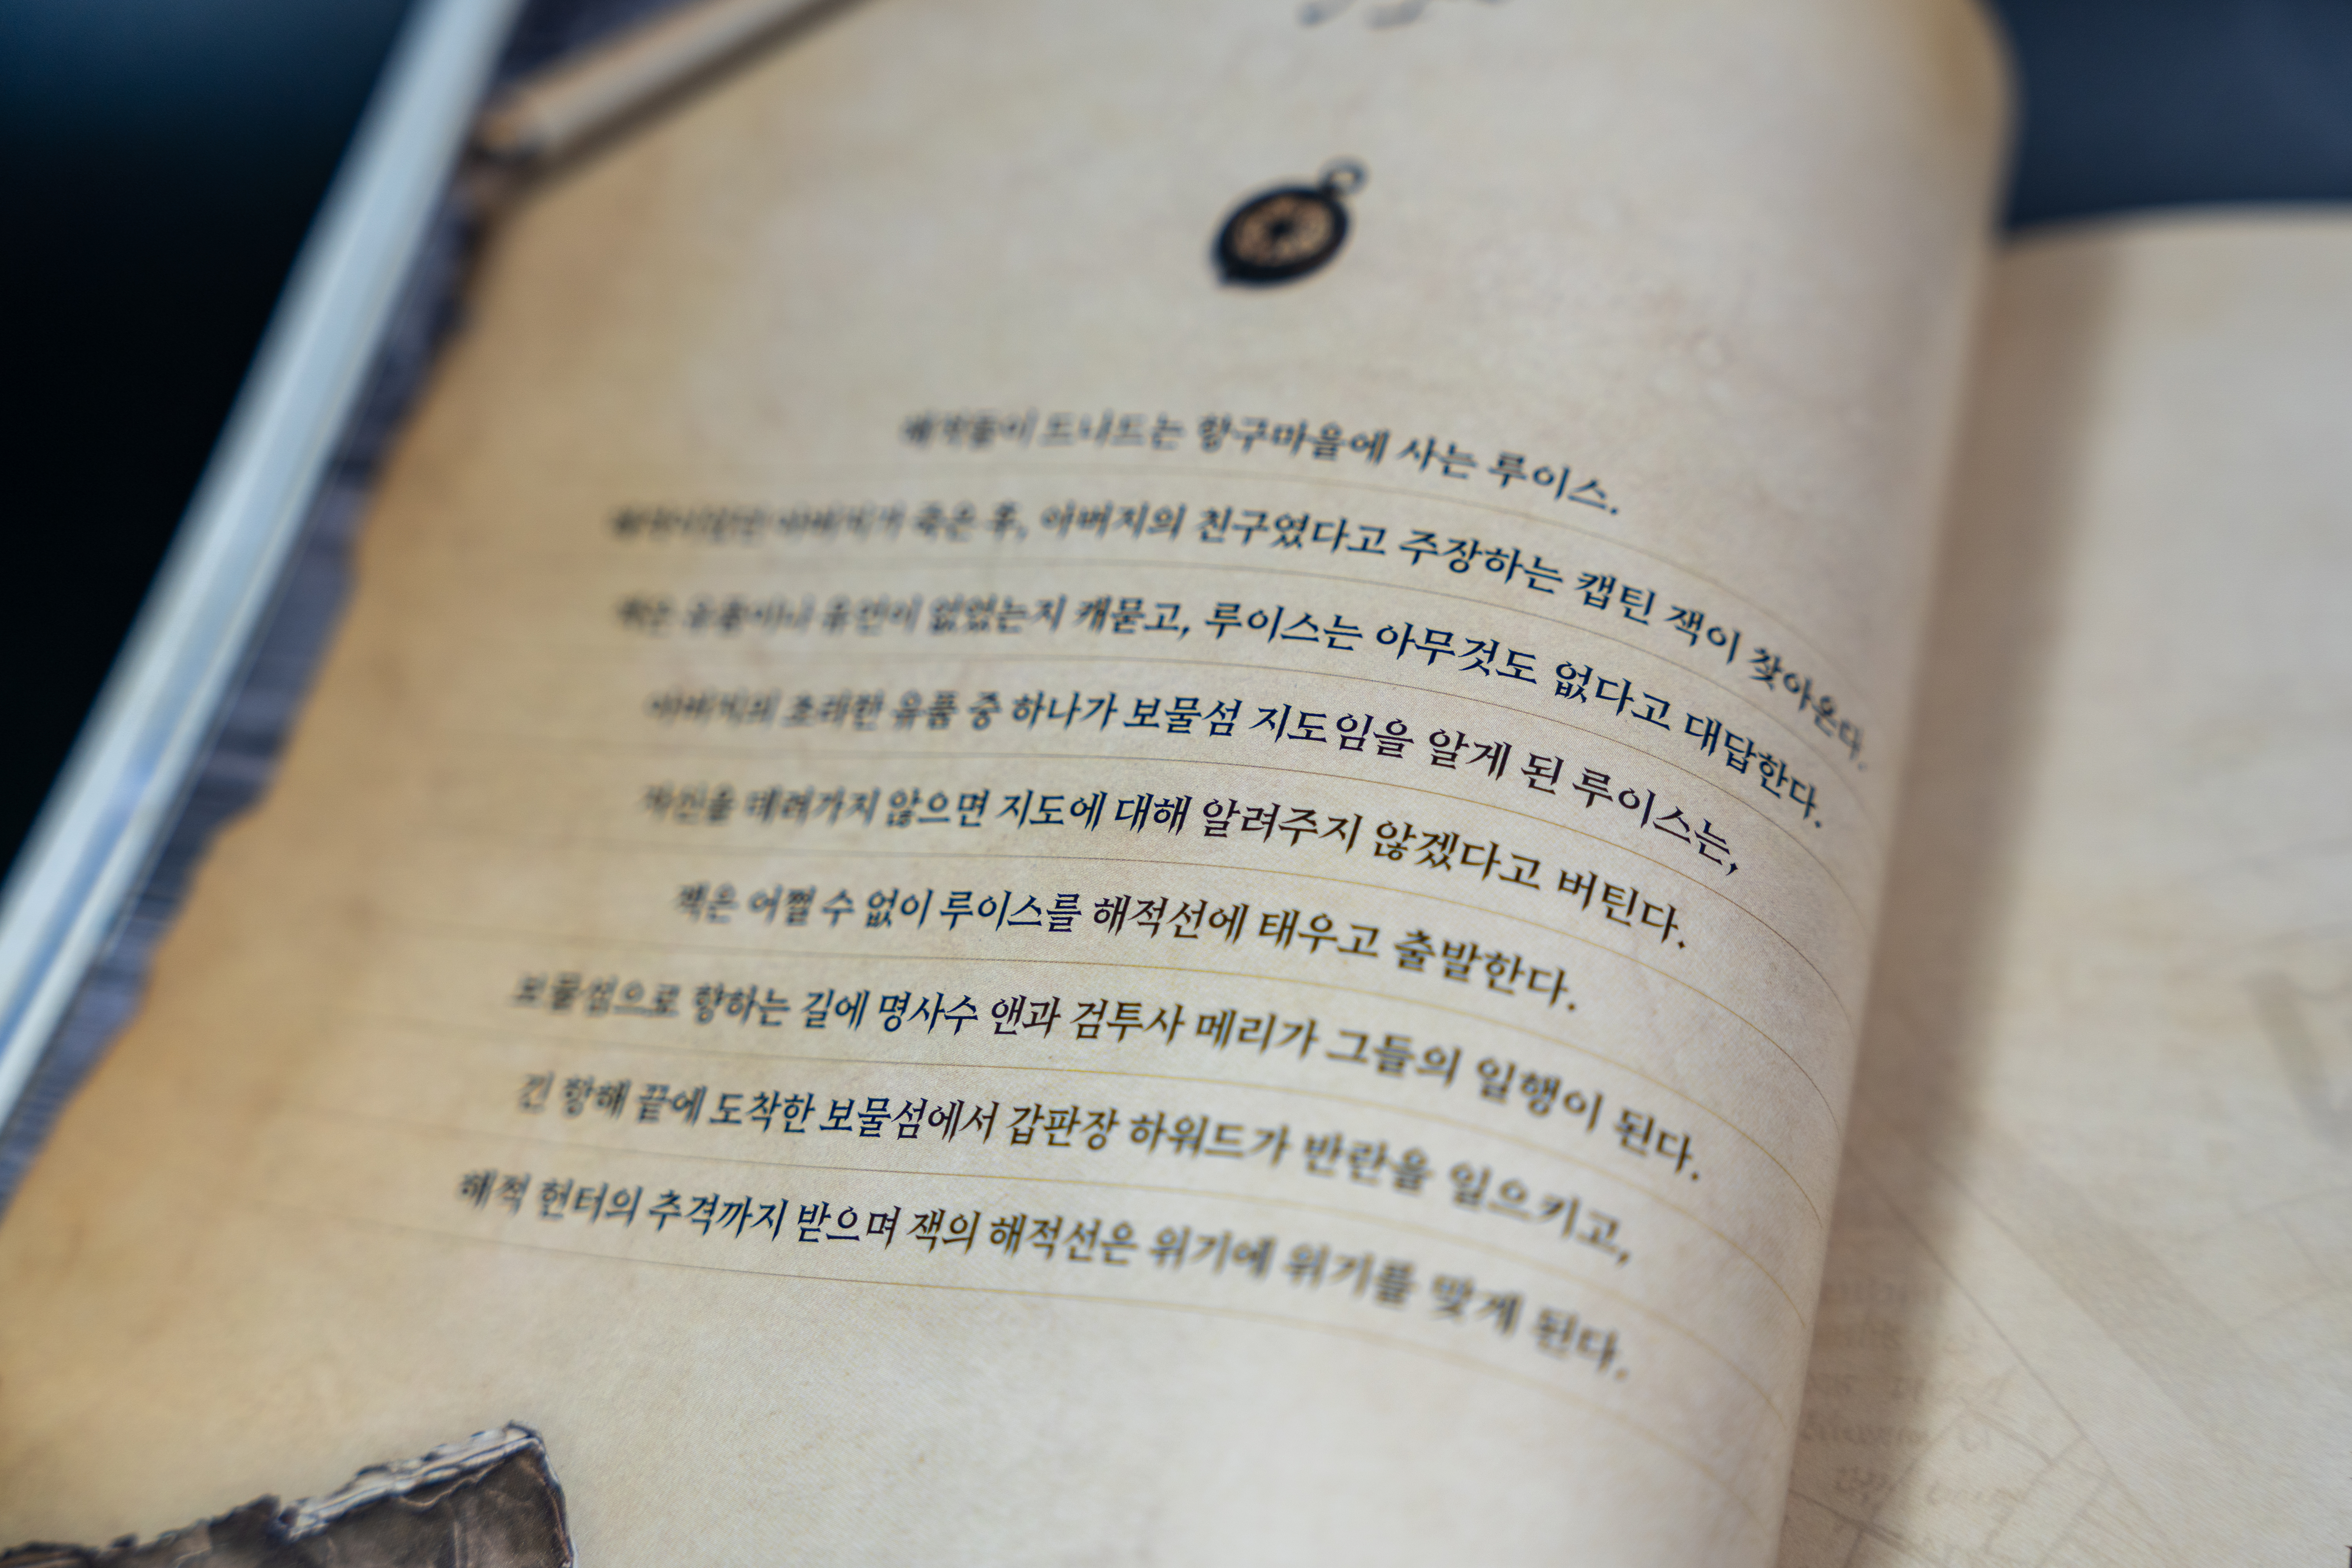 해적들이 드나드는 항구마을에 사는 루이스.
아버지가 죽은 후, 아버지의 친구였다고 주장하는 캡틴 잭이 찾아온다.
잭은 유품이나 유언이 없었는지 캐묻고, 루이스는 아무것도 없다고 대답한다.
아버지의 초라한 유품 중 하나가 보물섬 지도임을 알게 된 루이스는,
자신을 데려가지 않으면 지도에 대해 알려주지 않겠다고 버틴다.
잭은 어쩔 수 없이 루이스를 해적선에 태우고 출발한다.
보물섬으로 향하는 길에 명사수 앤과 검투사 메리가 그들의 일행이 된다.
긴 항해 끝에 도착한 보물섬에서 갑판장 하워드가 반란을 일으키고,
해적 헌터의 추격까지 받으며 잭의 해적선은 위기에 위기를 맞게 된다.